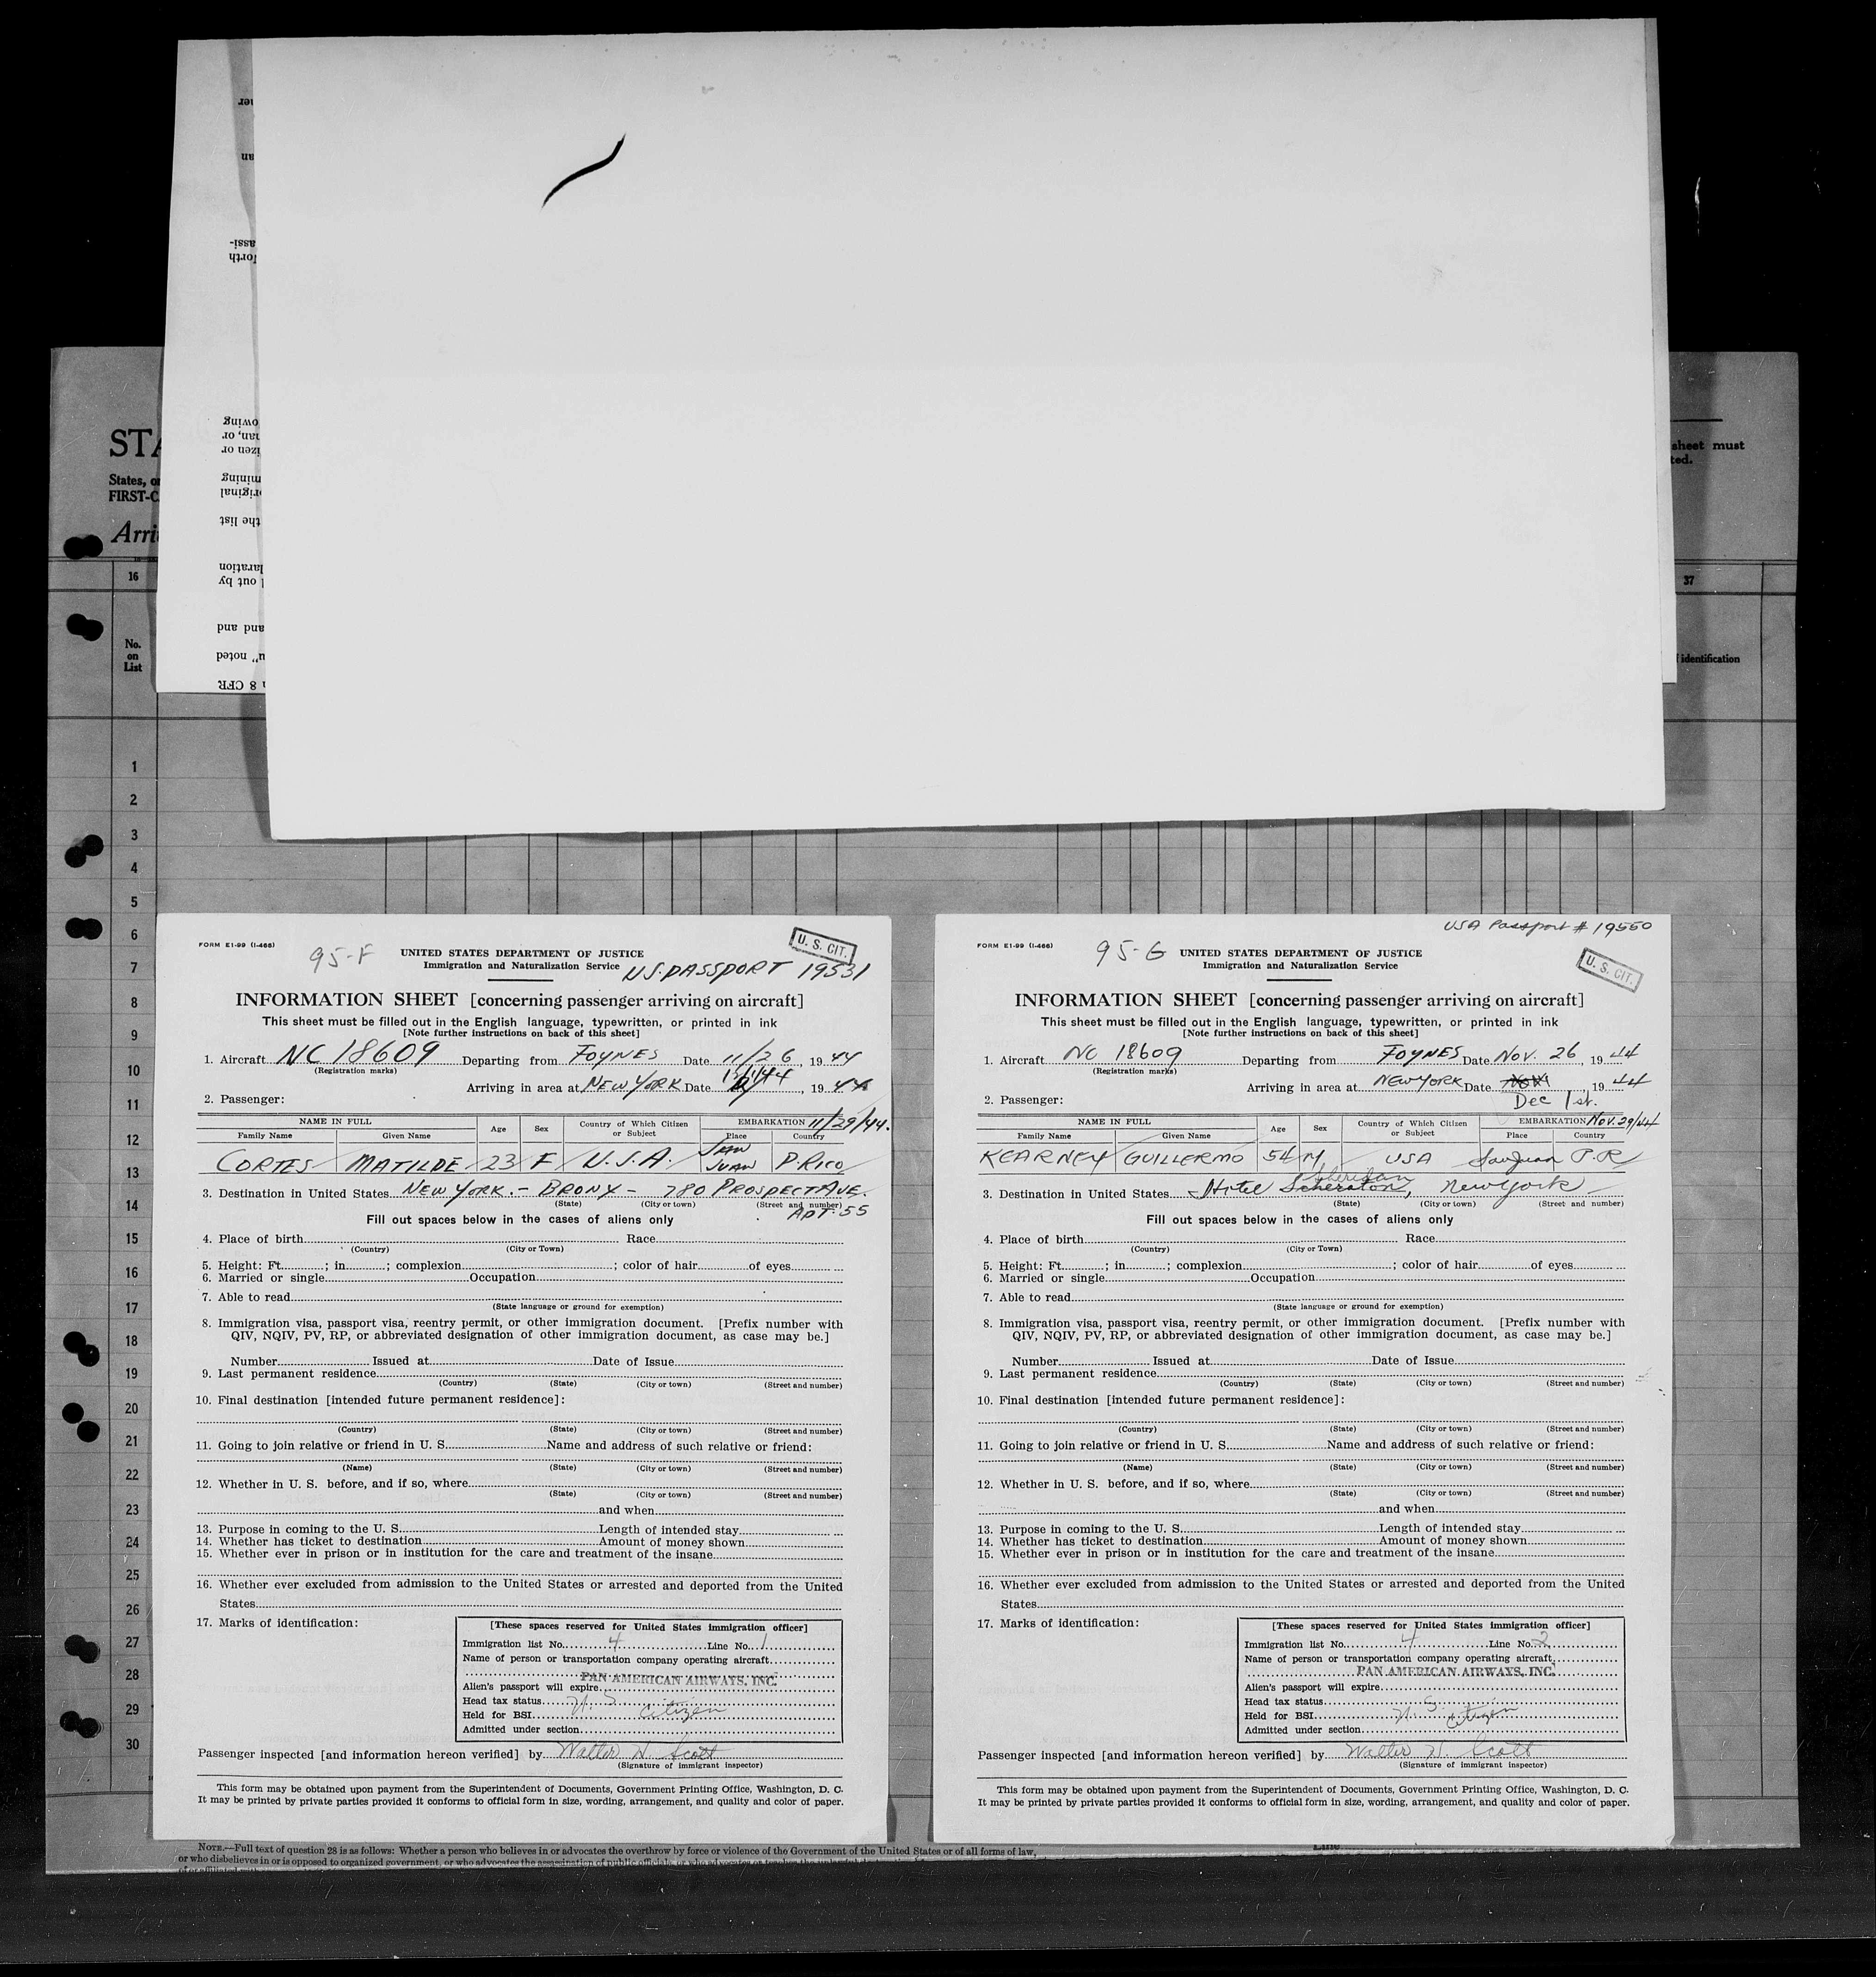 STA
States, o
FIRST-C
Arri
16
No.
on
List
1
2
3
4
5
6
7
8
9
10
11
12
13
14
15
16
17
18
19
20
21
22
23
24
25
26
27
28
29
30
assi-
owing
izen or
mining
the list
out by
and and
noted
8 CFR
sheet must
ted.
37
identification
FORM E1-99 (I-466)
95-F
U. S. CIT.
UNITED STATES DEPARTMENT OF JUSTICE
Immigration and Naturalization Service
U.S. PASSPORT 19531
INFORMATION SHEET [concerning passenger arriving on aircraft]
This sheet must be filled out in the English language, typewritten, or printed in ink
[Note further instructions on back of this sheet]
1. Aircraft NC 18609 Departing from FOYNES Date 11/26, 1944
(Registration marks)
Arriving in area at NEW YORK Date , 19 44
2. Passenger:
NAME IN FULL Age Sex Country of Which Citizen or Subject EMBARKATION 11/29/44.
Family Name Given Name Place Country
CORTES MATILDE 23 F U.S.A. SAN JUAN P. RICO
3. Destination in United States NEW YORK. - BRONX - 780 PROSPECT AVE.
(State) (City or town) (Street and number)
APT. 55
Fill out spaces below in the cases of aliens only
4. Place of birth Race
(Country) (City or Town)
5. Height: Ft. ; in ; complexion ; color of hair of eyes
6. Married or single Occupation
7. Able to read
(State language or ground for exemption)
8. Immigration visa, passport visa, reentry permit, or other immigration document. [Prefix number with
QIV, NQIV, PV, RP, or abbreviated designation of other immigration document, as case may be.]
Number Issued at Date of Issue
9. Last permanent residence
(Country) (State) (City or town) (Street and number)
10. Final destination [intended future permanent residence]:
(Country) (State) (City or town) (Street and number)
11. Going to join relative or friend in U. S. Name and address of such relative or friend:
(Name) (State) (City or town) (Street and number)
12. Whether in U. S. before, and if so, where
(State) (City or town) (Street and number)
and when
13. Purpose in coming to the U. S. Length of intended stay
14. Whether has ticket to destination Amount of money shown
15. Whether ever in prison or in institution for the care and treatment of the insane
16. Whether ever excluded from admission to the United States or arrested and deported from the United
States
17. Marks of identification:
[These spaces reserved for United States immigration officer]
Immigration list No. 4 Line No. 1
Name of person or transportation company operating aircraft
PAN AMERICAN AIRWAYS, INC.
Alien's passport will expire
Head tax status
Held for BSI U. S. Citizen
Admitted under section
Passenger inspected [and information hereon verified] by Walter H. Scott
(Signature of immigrant inspector)
This form may be obtained upon payment from the Superintendent of Documents, Government Printing Office, Washington, D. C.
It may be printed by private parties provided it conforms to official form in size, wording, arrangement, and quality and color of paper.
USA Passport # 19550
FORM E1-99 (I-466)
95-G
U. S. CIT.
UNITED STATES DEPARTMENT OF JUSTICE
Immigration and Naturalization Service
INFORMATION SHEET [concerning passenger arriving on aircraft]
This sheet must be filled out in the English language, typewritten, or printed in ink
[Note further instructions on back of this sheet]
1. Aircraft NC 18609 Departing from FOYNES Date Nov. 26, 1944
(Registration marks)
Arriving in area at NEW YORK Date Nov , 19 44
Dec 1st.
2. Passenger:
NAME IN FULL Age Sex Country of Which Citizen or Subject EMBARKATION Nov. 29/44
Family Name Given Name Place Country
KEARNEY GUILLERMO 54 M USA San Juan P.R
Sheridan
3. Destination in United States Hotel Scheraton, New York
(State) (City or town) (Street and number)
Fill out spaces below in the cases of aliens only
4. Place of birth Race
(Country) (City or Town)
5. Height: Ft. ; in ; complexion ; color of hair of eyes
6. Married or single Occupation
7. Able to read
(State language or ground for exemption)
8. Immigration visa, passport visa, reentry permit, or other immigration document. [Prefix number with
QIV, NQIV, PV, RP, or abbreviated designation of other immigration document, as case may be.]
Number Issued at Date of Issue
9. Last permanent residence
(Country) (State) (City or town) (Street and number)
10. Final destination [intended future permanent residence]:
(Country) (State) (City or town) (Street and number)
11. Going to join relative or friend in U. S. Name and address of such relative or friend:
(Name) (State) (City or town) (Street and number)
12. Whether in U. S. before, and if so, where
(State) (City or town) (Street and number)
and when
13. Purpose in coming to the U. S. Length of intended stay
14. Whether has ticket to destination Amount of money shown
15. Whether ever in prison or in institution for the care and treatment of the insane
16. Whether ever excluded from admission to the United States or arrested and deported from the United
States
17. Marks of identification:
[These spaces reserved for United States immigration officer]
Immigration list No. 4 Line No. 2
Name of person or transportation company operating aircraft
PAN AMERICAN AIRWAYS, INC.
Alien's passport will expire
Head tax status
Held for BSI U. S. Citizen
Admitted under section
Passenger inspected [and information hereon verified] by Walter H. Scott
(Signature of immigrant inspector)
This form may be obtained upon payment from the Superintendent of Documents, Government Printing Office, Washington, D. C.
It may be printed by private parties provided it conforms to official form in size, wording, arrangement, and quality and color of paper.
NOTE.—Full text of question 28 is as follows: Whether a person who believes in or advocates the overthrow by force or violence of the Government of the United States or of all forms of law,
or who disbelieves in or is opposed to organized government, or who advocates the assassination of public officials,
Line